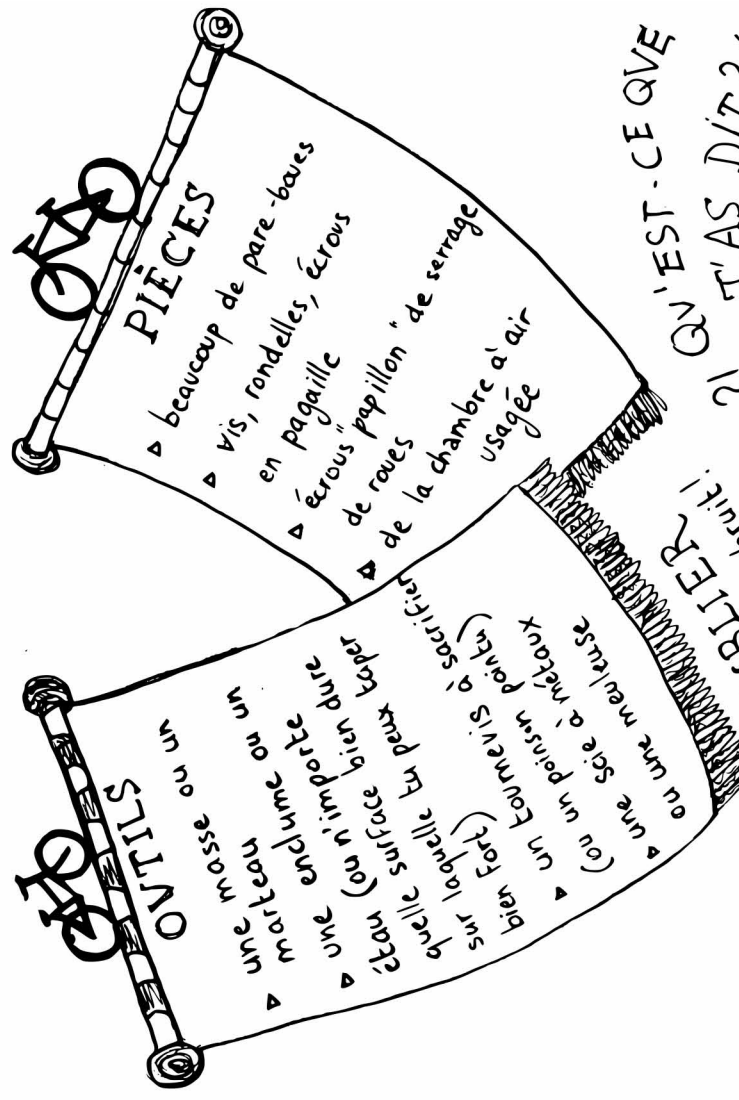 OVTILS
▵ une masse ou un
marteau
▵ une enclume ou un
étau (ou n'importe
quelle surface bien dure
sur laquelle tu peux taper
bien fort)
▵ un tournevis à sacrifier
(ou un poinson pointu)
▵ une scie à métaux
ou une meuleuse
PIÈCES
▵ beaucoup de pare-boues
▵ vis, rondelles, écrous
en pagaille
▵ écrous "papillon" de serrage
de roues
▵ de la chambre à air
usagée
QV'EST-CE QVE
?! T'AS DIT ?!
bruit!